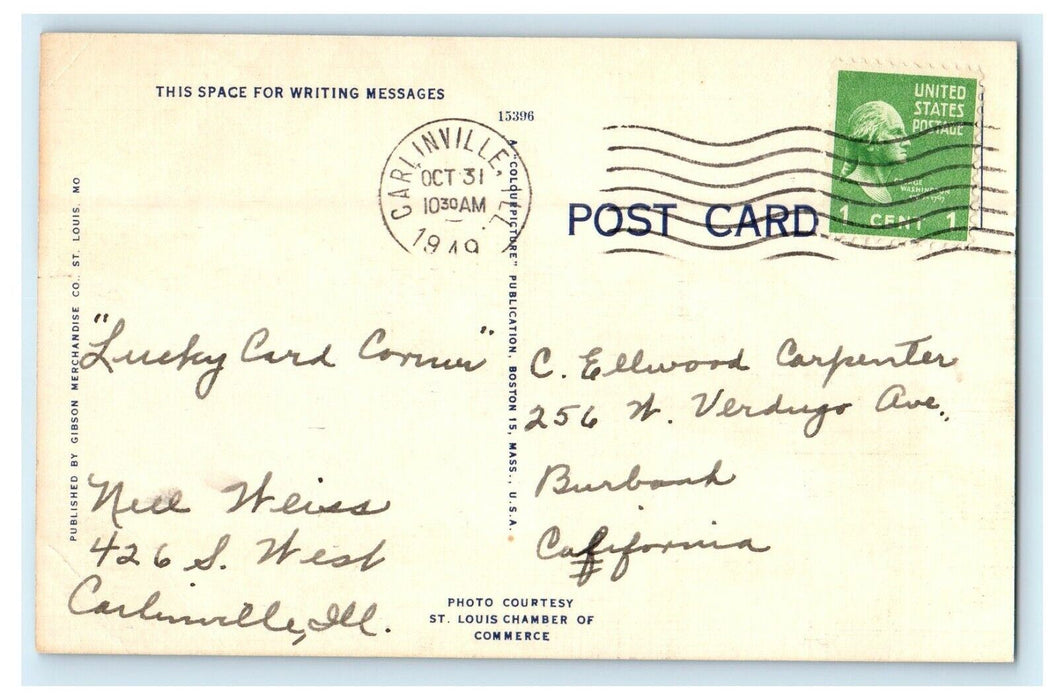 THIS SPACE FOR WRITING MESSAGES
15396
CARLINVILLE, ILL.
OCT 31
10 30 AM
1949
UNITED
STATES
POSTAGE
GEORGE
WASHINGTON
1 CENT 1
POST CARD
A "COLOURPICTURE" PUBLICATION, BOSTON 15, MASS., U.S.A.
PUBLISHED BY GIBSON MERCHANDISE CO., ST. LOUIS, MO
"Lucky Card Corner"
Nell Weiss
426 S. West
Carlinville, Ill.
C. Ellwood Carpenter
256 W. Verdugo Ave.,
Burbank
California
PHOTO COURTESY
ST. LOUIS CHAMBER OF
COMMERCE